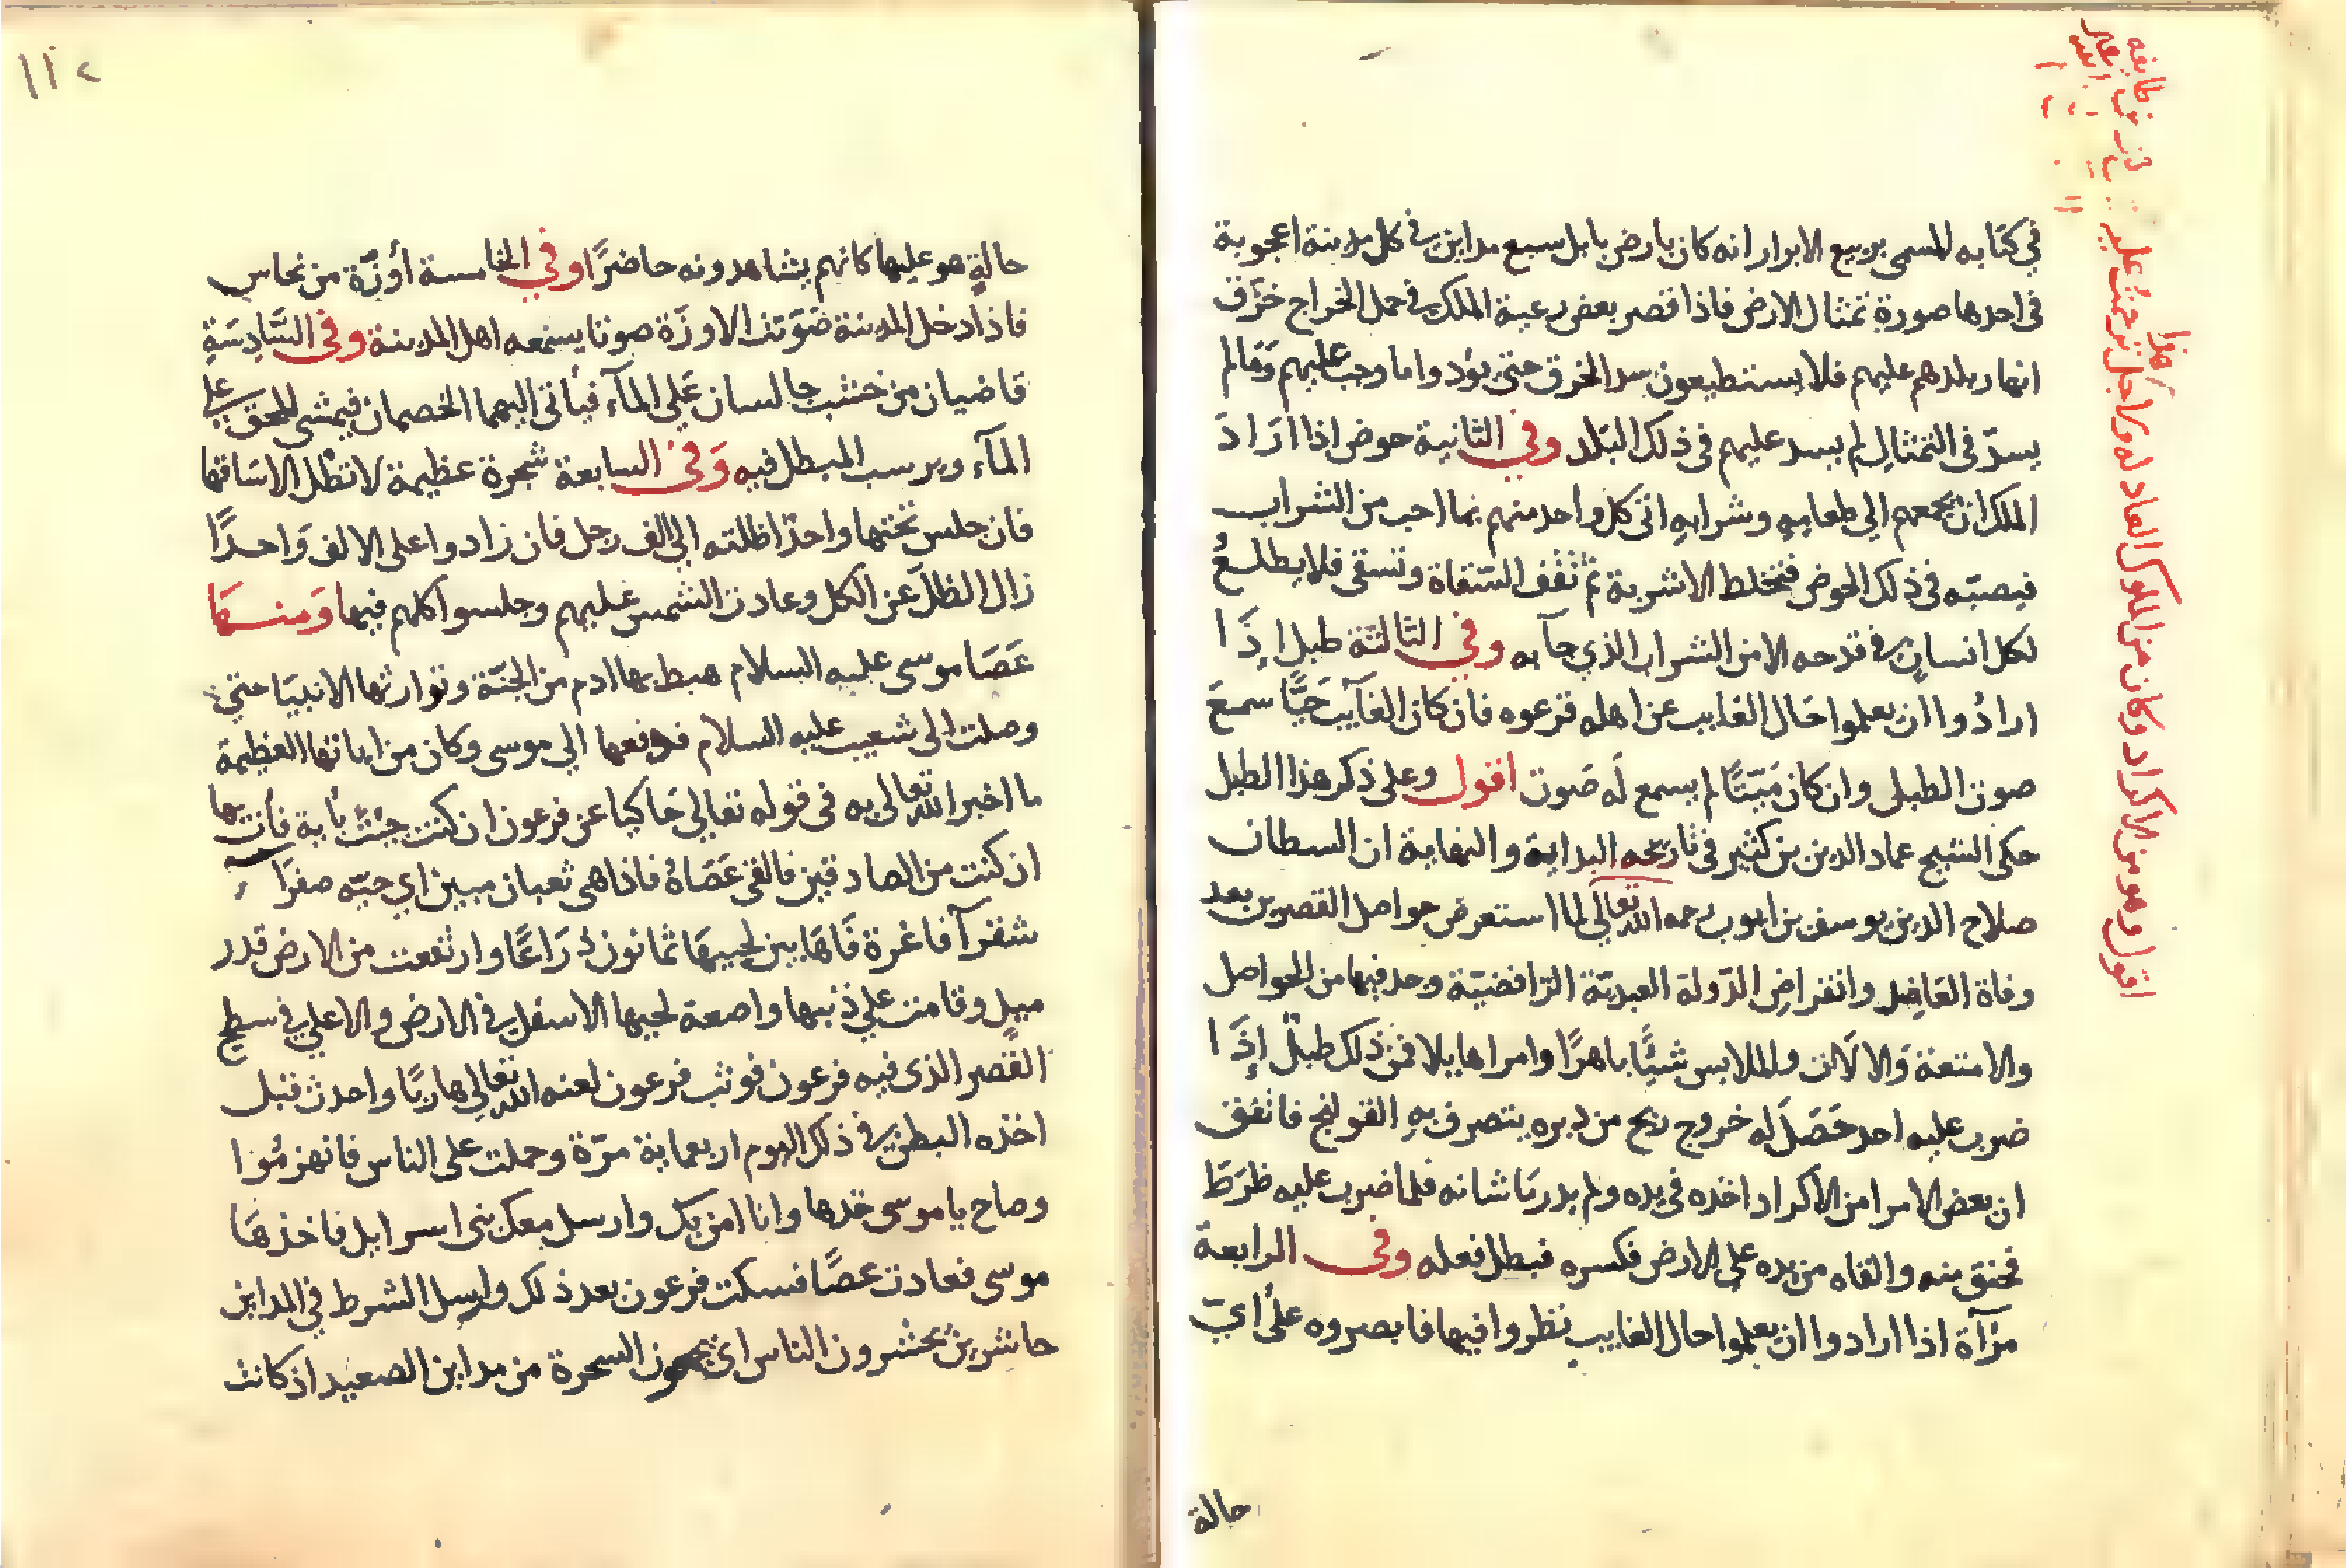 في كتابه المسمى بربيع الابرار انه كان بارض بابل سبع مداين في كل مدينة اعجوبة
في احدها صورة تمثال الارض فاذا قصر بعض رعية الملك في حمل الخراج خرّق
انهار بلدهم عليهم فلا يستطيعون سد الخرق حتى يؤدوا ما وجب عليهم وَمَا لم
يسدّ في التمثال لم يسد عليهم في ذلك البَلد وفي الثانية حوض اذا ارَادَ
الملك ان يجمعهم الي طعامِهِ وشرابهِ اتى كل واحد منهم بما احب من الشراب
فيصبّه في ذلك الحوض فتختلط الاشربة ثم تقف السّقاة وتسقى فلا يطلعُ
لكل انسانٍ في قدحه الا من الشراب الذي جآ به وفي الثالثة طبل اِذَا
ارادُوا ان يعلموا حَال الغايب عن اهله قرعوه فان كان الغآيب حَيًّا سمعَ
صوت الطبل وان كان مَيّتًا لم يسمع لَه صَوت اقول وعلى ذكر هذا الطبل
حكى الشيخ عماد الدين بن كثير في تاريخه البداية والنهاية ان السطان
صلاح الدين يوسف بن ايوب رحمه الله تعالي لما استعرض حواصل القصرين بعد
وفاة العَاضِد وانقراضِ الدّولة العبديّة الرّافضيّة وجد فيها من الحواصل
والامتعة وَالالَات والملابس شيًّا باهرًا وامراها يلا فمن ذلك طبلٌ إِذَا
ضرب عليه احد حَصَلَ لَه خروج ريح من دبره ينصرف بهِ القولنج فاتفق
ان بعض الامرا من الاكراد اخذه في يده ولم يدر مَا شانه فلما ضرب عليه ظرَطَ
فحنق منه والقاه من يده على الارض فكسره فبطل فعله وفى الرابعة
مرْآة اذا ارادوا ان يعلموا حال الغايب نظروا فيها فابصروه علي ايّ
حالة
اقول وهو من الاكراد وكان من الملوك العادله ولاجل ترحمتُ عليه
هذا
١١٢
حالةٍ هو عليها كانهم يشاهدونه حاضرًا وفي الخامسة أوزّة من نحاس
فاذا دخل المدينة صَوّتت الاوزَة صوتا يسمعه اهل المدينة وفى السَّادِسَةِ
قاضيان من خشب جالسان عَلي المآء فيأتى اليهما الخصمان فيمشى المحق علي
المآء ويرسب المبطل فيه وَفى السابعة شجرة عظيمة لا تظل الا سَاقها
فان جلس تحتها واحدًا ظلته الي الف رجل فان زادوا على الالف وَاحدًا
زال الظل عن الكل وعادت الشمس عليهم وجلسوا كلهم فيها وَمنهَا
عَصَا موسى عليه السلام هبط بها ادم من الجنّة وتوارثها الانبيَا حتي
وصلت الى شعيب عليه السلام فدفعها الي موسى وكان من اياتها العظيمة
ما اخبر الله تعالى به فى قوله تعالي حَاكيا عن فرعون ان كنت جئت بأية فأت بها
ان كنت من الصادقين فالقى عَصَاهُ فاذا هى ثعبان مبين اي حيّه صفرَاء
شقرآ فاغرة فَاهَا بين لحييهَا ثمانون ذرَاعًا وارتفعت من الارض قدر
ميلٍ وقامت علي ذنبها واضعة لحيها الاسفل في الارض والاعلي في سطح
القصر الذى فيه فرعون فوثب فرعون لعنه الله تعالي هاربًا واحدث قبل
اخذه البطن في ذلك اليوم اربعماية مرّة وحملت على الناس فانهزمُوا
وصاح يا موسى خذها وانا امن بك وارسل معك بنى اسرايل فاخذهَا
موسى فعادت عصًا فسكت فرعون بعد ذلك وارسل الشرط في المداين
حاشرين يحشرون الناس اى يجمعون السحرة من مداين الصعيد اذ كانت